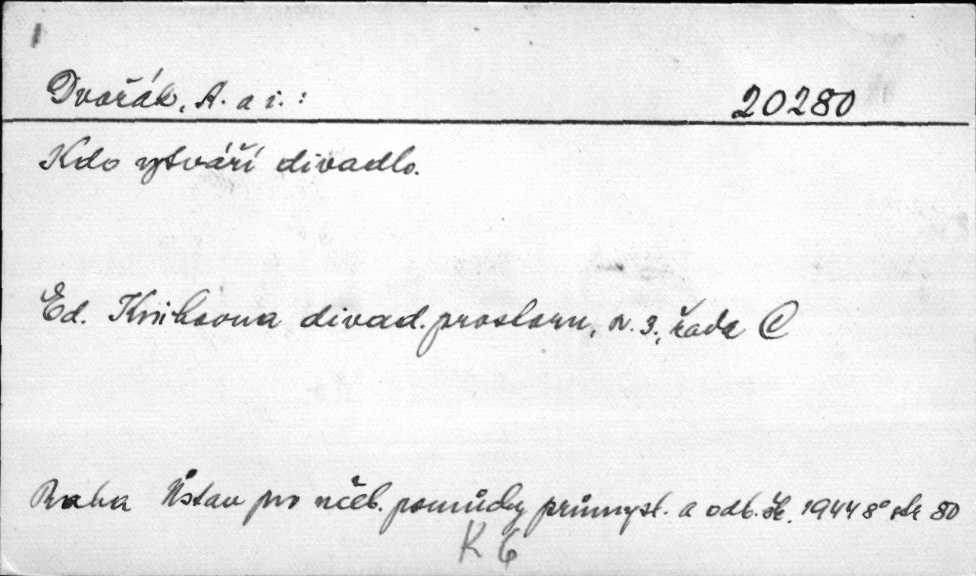 Dvořák, A. a i.:
20280
Kdo vytváří divadlo.
Ed. Knihovna divad. prostoru, sv. 3., řada C
Praha Ústav pro učeb. pomůcky průmysl. a odb. šk. 1944 8° str 80
K 6